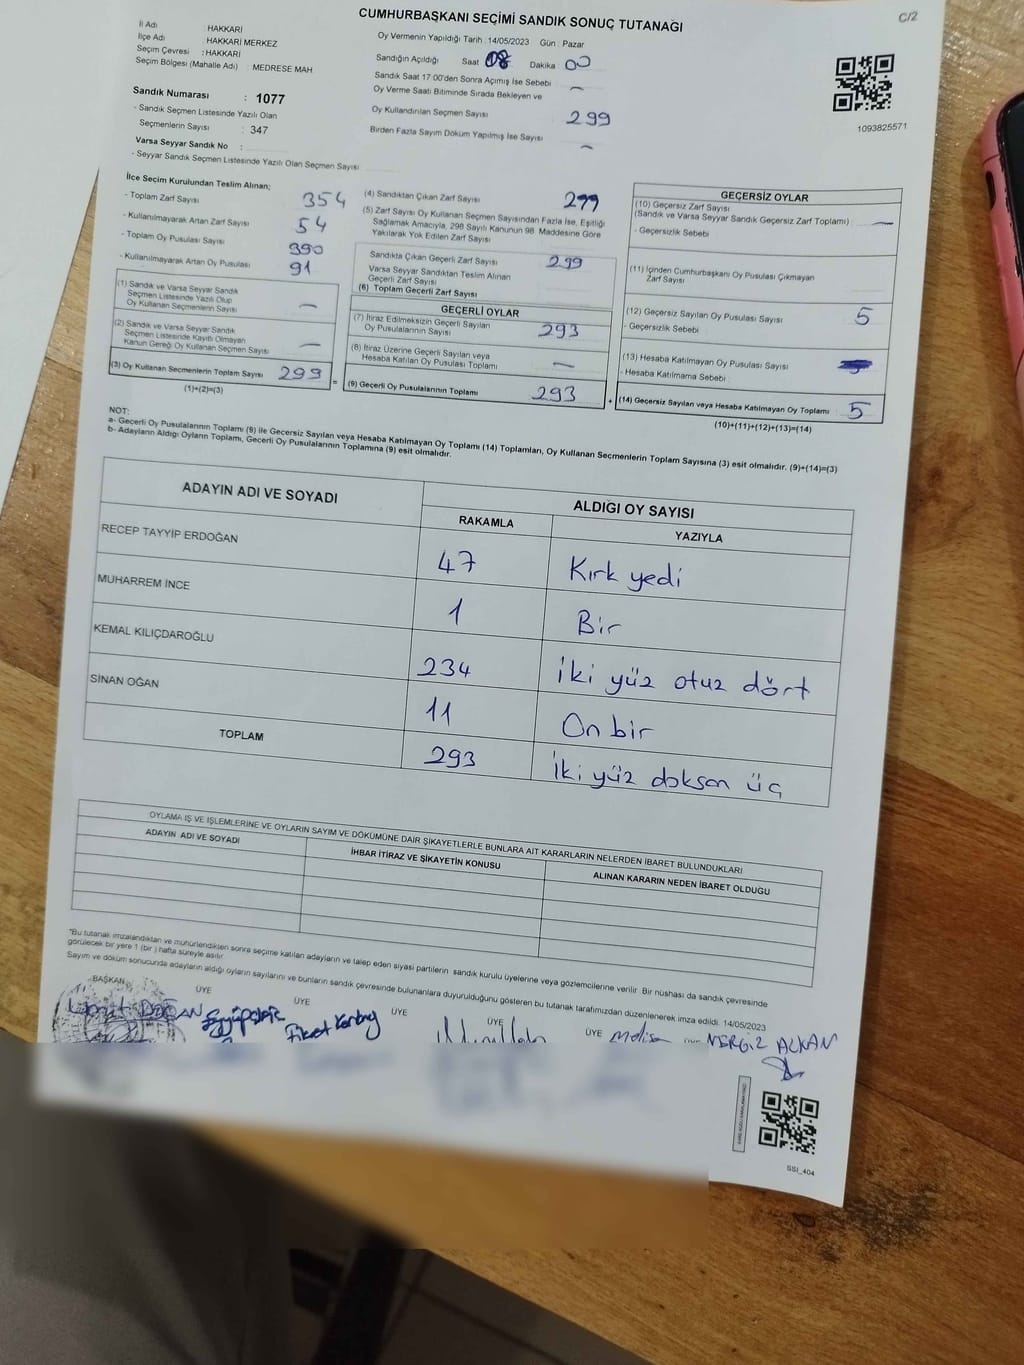 CUMHURBAŞKANI SEÇİMİ SANDIK SONUÇ TUTANAĞI
C/2
İl Adı : HAKKARİ
İlçe Adı : HAKKARİ MERKEZ
Seçim Çevresi : HAKKARİ
Seçim Bölgesi (Mahalle Adı) : MEDRESE MAH
Sandık Numarası : 1077
- Sandık Seçmen Listesinde Yazılı Olan
Seçmenlerin Sayısı : 347
Varsa Seyyar Sandık No :
- Seyyar Sandık Seçmen Listesinde Yazılı Olan Seçmen Sayısı
Oy Vermenin Yapıldığı Tarih : 14/05/2023 Gün : Pazar
Sandığın Açıldığı Saat 08 Dakika 00
Sandık Saat 17:00'den Sonra Açımış İse Sebebi
Oy Verme Saati Bitiminde Sırada Bekleyen ve
Oy Kullandırılan Seçmen Sayısı 299
Birden Fazla Sayım Döküm Yapılmış İse Sayısı
1093825571
İlçe Seçim Kurulundan Teslim Alınan;
- Toplam Zarf Sayısı 354
- Kullanılmayarak Artan Zarf Sayısı 54
- Toplam Oy Pusulası Sayısı 390
- Kullanılmayarak Artan Oy Pusulası 91
(1) Sandık ve Varsa Seyyar Sandık
Seçmen Listesinde Yazılı Olup
Oy Kullanan Seçmenlerin Sayısı
(2) Sandık ve Varsa Seyyar Sandık
Seçmen Listesinde Kayıtlı Olmayan
Kanun Gereği Oy Kullanan Seçmen Sayısı
(3) Oy Kullanan Seçmenlerin Toplam Sayısı 299
(1)+(2)=(3)
=
(4) Sandıktan Çıkan Zarf Sayısı 299
(5) Zarf Sayısı Oy Kullanan Seçmen Sayısından Fazla İse, Eşitliği
Sağlamak Amacıyla, 298 Sayılı Kanunun 98. Maddesine Göre
Yakılarak Yok Edilen Zarf Sayısı
Sandıkta Çıkan Geçerli Zarf Sayısı 299
Varsa Seyyar Sandıktan Teslim Alınan
Geçerli Zarf Sayısı
(6) Toplam Geçerli Zarf Sayısı
GEÇERLİ OYLAR
(7) İtiraz Edilmeksizin Geçerli Sayılan
Oy Pusulalarının Sayısı 293
(8) İtiraz Üzerine Geçerli Sayılan veya
Hesaba Katılan Oy Pusulası Toplamı
(9) Geçerli Oy Pusulalarının Toplamı 293
+
GEÇERSİZ OYLAR
(10) Geçersiz Zarf Sayısı
(Sandık ve Varsa Seyyar Sandık Geçersiz Zarf Toplamı)
- Geçersizlik Sebebi
(11) İçinden Cumhurbaşkanı Oy Pusulası Çıkmayan
Zarf Sayısı
(12) Geçersiz Sayılan Oy Pusulası Sayısı 5
- Geçersizlik Sebebi
(13) Hesaba Katılmayan Oy Pusulası Sayısı
- Hesaba Katılmama Sebebi
(14) Geçersiz Sayılan veya Hesaba Katılmayan Oy Toplamı 5
(10)+(11)+(12)+(13)=(14)
NOT:
a- Geçerli Oy Pusulalarının Toplamı (9) ile Geçersiz Sayılan veya Hesaba Katılmayan Oy Toplamı (14) Toplamları, Oy Kullanan Seçmenlerin Toplam Sayısına (3) eşit olmalıdır. (9)+(14)=(3)
b- Adayların Aldığı Oyların Toplamı, Geçerli Oy Pusulalarının Toplamına (9) eşit olmalıdır.
ADAYIN ADI VE SOYADI ALDIĞI OY SAYISI
RAKAMLA YAZIYLA
RECEP TAYYİP ERDOĞAN 47 Kırk yedi
MUHARREM İNCE 1 Bir
KEMAL KILIÇDAROĞLU 234 iki yüz otuz dört
SİNAN OĞAN 11 On bir
TOPLAM 293 iki yüz doksan üç
OYLAMA İŞ VE İŞLEMLERİNE VE OYLARIN SAYIM VE DÖKÜMÜNE DAİR ŞİKAYETLERLE BUNLARA AİT KARARLARIN NELERDEN İBARET BULUNDUKLARI
ADAYIN ADI VE SOYADI İHBAR İTİRAZ VE ŞİKAYETİN KONUSU ALINAN KARARIN NEDEN İBARET OLDUĞU
*Bu tutanak imzalandıktan ve mühürlendikten sonra seçime katılan adayların ve talep eden siyasi partilerin sandık kurulu üyelerine veya gözlemcilerine verilir. Bir nüshası da sandık çevresinde
görülecek bir yere 1 (bir ) hafta süreyle asılır.
Sayım ve döküm sonucunda adayların aldığı oyların sayılarını ve bunların sandık çevresinde bulunanlara duyurulduğunu gösteren bu tutanak tarafımızdan düzenlenerek imza edildi. 14/05/2023
BAŞKAN ÜYE ÜYE ÜYE ÜYE ÜYE
DOĞAN Melisa NERGİZ ALKAN
SSI_404